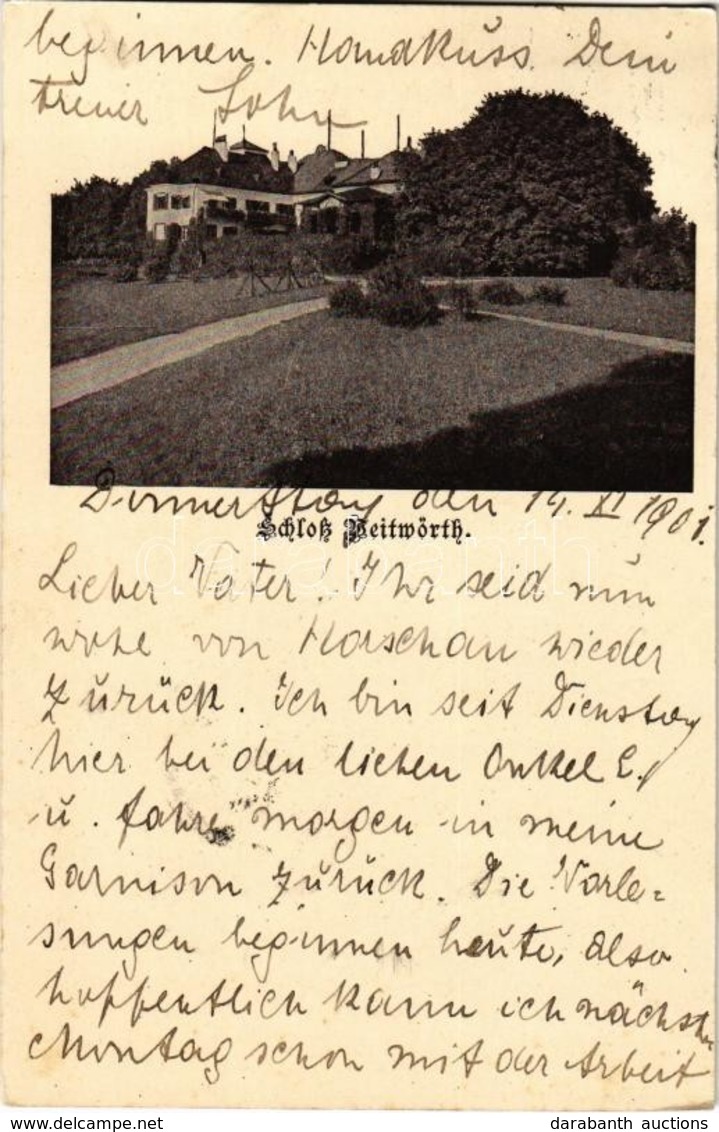 beginnen. Handkuss. Dein
treuer Sohn
Donnerstag den 14. XI 1901.
Schloß Weitwörth.
Lieber Vater! Ihr seid nun
wohl von Horschau wieder
zurück. Ich bin seit Dienstag
hier bei den lieben Onkel E.
u. fahre morgen in meine
Garnison zurück. Die Vorle=
sungen beginnen heute, also
hoffentlich kann ich nächsten
Montag schon mit der Arbeit
darabanth
darabanth auctions